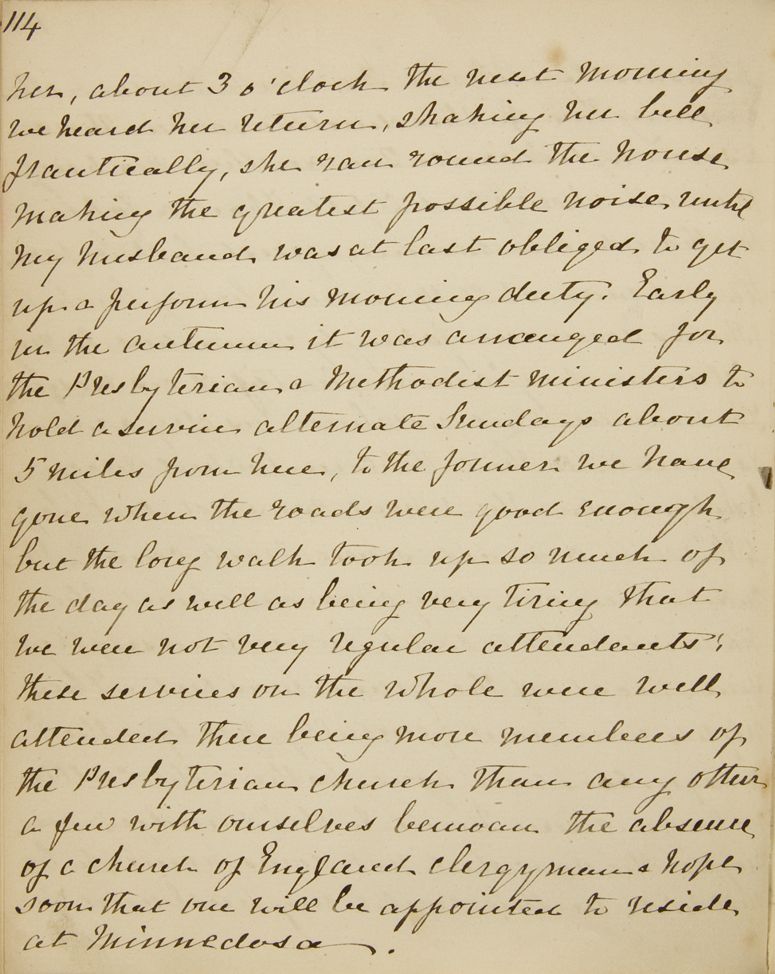 114
her, about 3 o'clock the next morning
we heard her return, shaking her bell
frantically, she ran round the house
making the greatest possible noise until
my husband was at last obliged to get
up & perform his morning duty. Early
in the autumn it was arranged for
the Presbyterian & Methodist ministers to
hold a service alternate Sundays about
5 miles from here, to the former we have
gone when the roads were good enough
but the long walk took up so much of
the day as well as being very tiring that
we were not very regular attendants;
these services on the whole were well
attended there being more members of
the Presbyterian church than any other
a few with ourselves bemoan the absence
of a church of England clergyman & hope
soon that one will be appointed to reside
at Minnedosa.